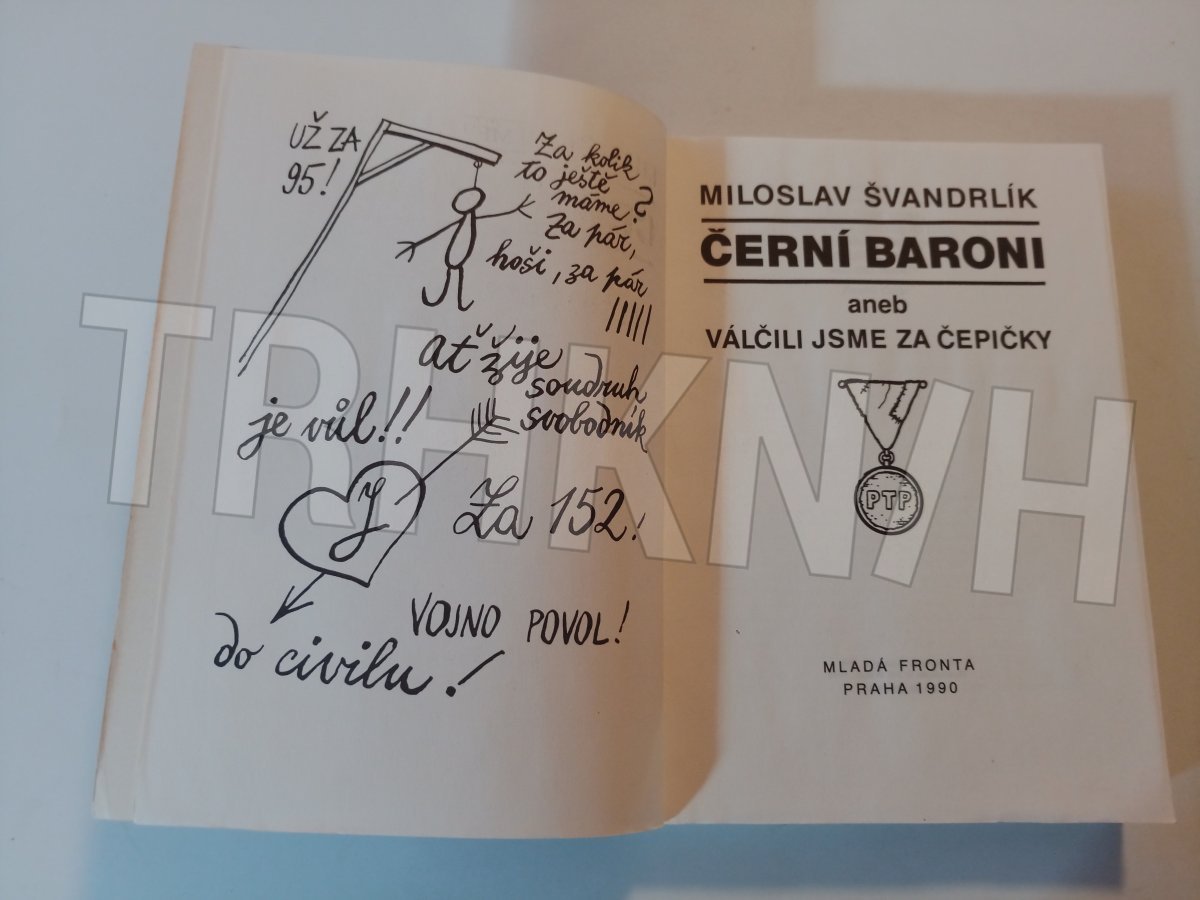 UŽ ZA
95!
Za kolik
to ještě
máme?
Za pár,
hoši, za pár
Ať žije
soudruh
svobodník
je vůl!!
J
Za 152!
VOJNO POVOL!
do civilu!
MILOSLAV ŠVANDRLÍK
ČERNÍ BARONI
aneb
VÁLČILI JSME ZA ČEPIČKY
PTP
MLADÁ FRONTA
PRAHA 1990
TRHKNIH